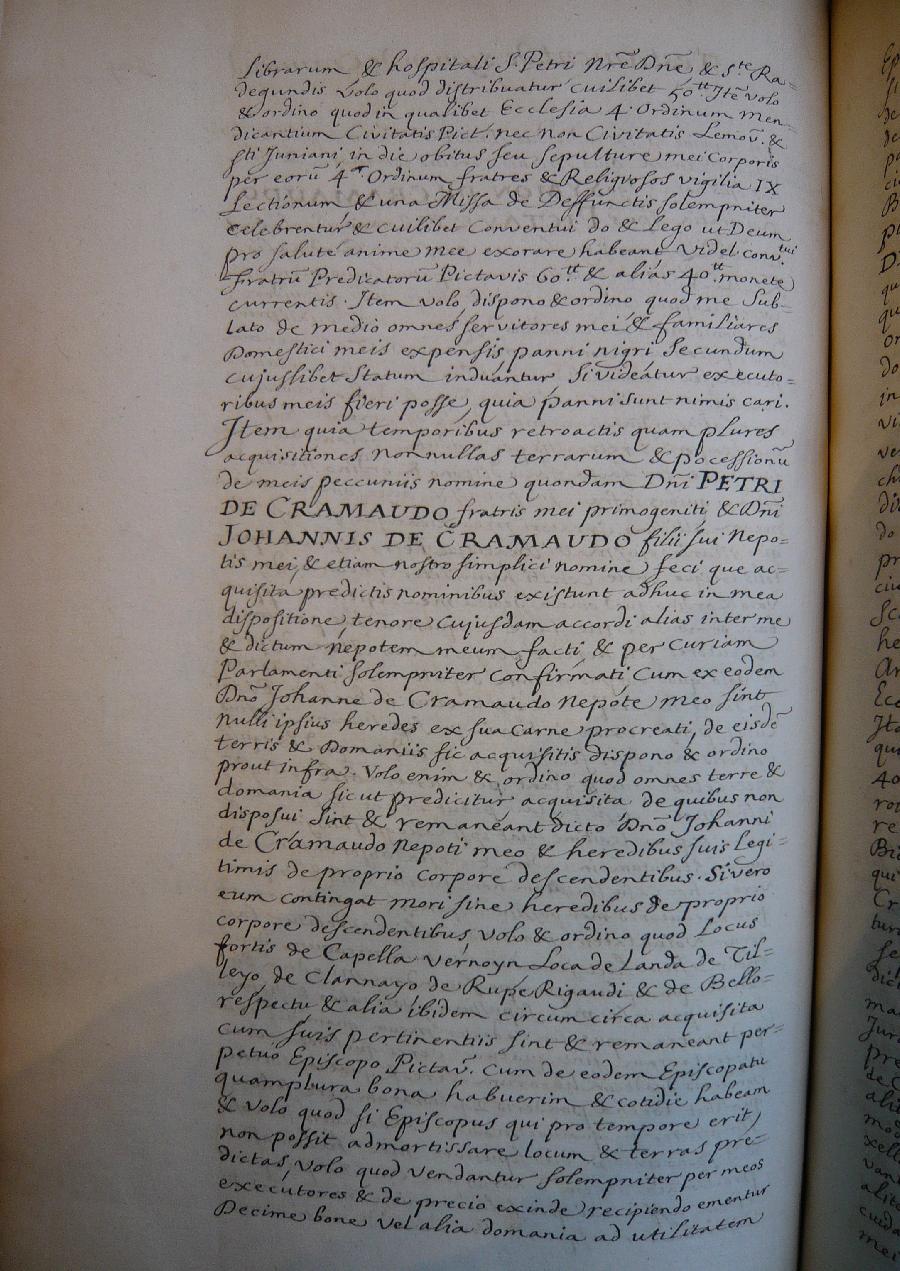 librarum & hospitali S. Petri Nrē Dñe & Ste Ra-
degundis Volo quod distribuatur cuilibet 50tt Itē volo
& ordino quod in qualibet Ecclesia 4. Ordinum men-
dicantium Civitatis Pict. nec non Civitatis Lemov̄. &
sti Juniani in die obitus seu sepulture mei Corporis
per eorū 4r. Ordinum fratres & Religuosos vigilia IX
Lectionum & una Missa de Deffunctis solempniter
celebrentur & cuilibet Conventui do & Lego ut Deum
pro salute anime mee exorare habeant Videl. convtui
fratrū Predicatorū Pictavis 60tt & alias 40tt monete
currentis. Item volo dispono & ordino quod me Sub-
lato de medio omnes servitores mei & familiares
Domestici meis expensis panni nigri Secundum
cujuslibet Statum induantur Si videatur executo=
ribus meis fieri posse, quia panni sunt nimis cari.
Item quia temporibus retroactis quam plures
acquisitiones nonnullas terrarum & pocessionū
de meis peccuniis nomine quondam Dñi PETRI
DE CRAMAUDO fratris mei primogeniti & Dñi
JOHANNIS DE CRAMAUDO filii sui Nepo=
tis mei, & etiam nostro simplici nomine feci que ac=
quisita predictis nominibus existunt adhuc in mea
dispositione, tenore cujusdam accordi alias inter me
& dictum nepotem meum facti & per Curiam
Parlamenti solempniter Confirmati Cum ex eodem
Dño Johanne de Cramaudo Nepote meo sint
nulli ipsius heredes ex sua Carne procreati, de eisdē
terris & Domaniis sic acquisitis dispono & ordino
prout infra. Volo enim & ordino quod omnes terre &
domania sicut predicitur acquisita de quibus non
disposui sint & remaneant dicto Dño Johanni
de Cramaudo Nepoti meo & heredibus suis Legi=
timis de proprio corpore descendentibus. Si vero
eum contingat mori sine heredibus de proprio
corpore descendentibus Volo & ordino quod Locus
fortis de Capella Vernoyn Loca de Landa de Til=
leyo de Clannayo de Rupe Rigaudi & de Bello=
respectu & alia ibidem circum circa acquisita
cum suis pertinentiis sint & remaneant per=
petuo Episcopo Pictav̄. Cum de eodem Episcopatu
quamplura bona habuerim & cotidie habeam
& volo quod si Episcopus qui pro tempore erit,
non possit admortissare locum & terras pre=
dictas, volo quod vendantur solempniter per meos
executores & de precio exinde recipiendo ementur
Decime bone vel alia domania ad utilitatem